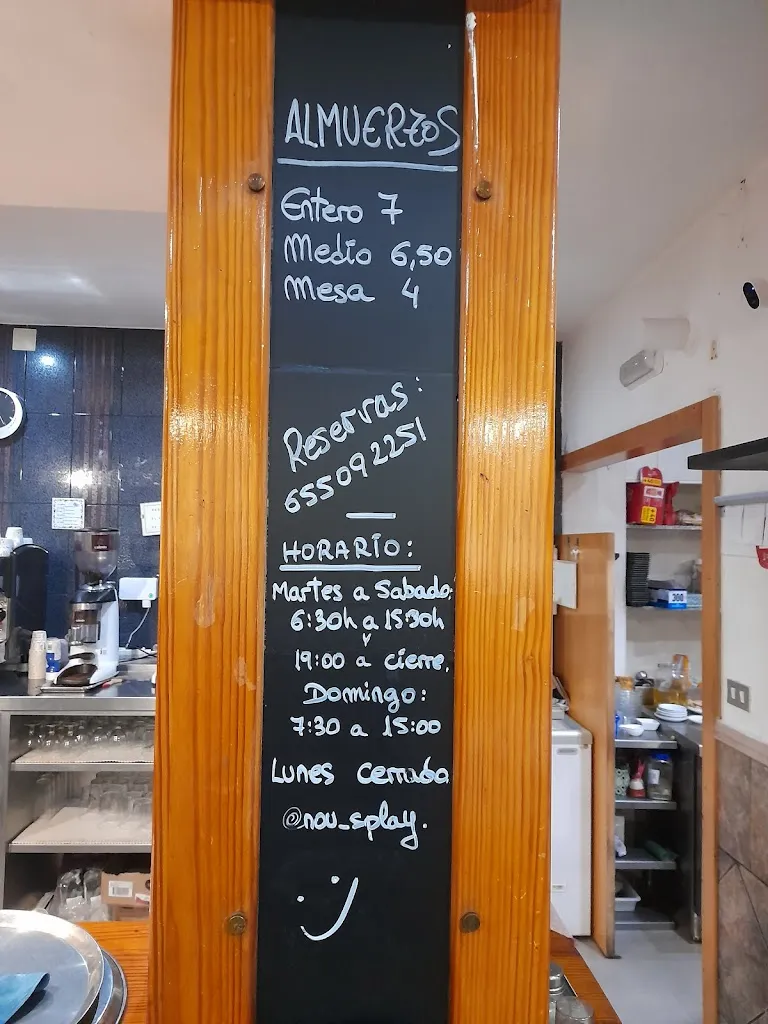 ALMUERZOS
Entero 7
Medio 6,50
Mesa 4
Reservas:
655092251
HORARIO:
Martes a Sabado,
6:30h a 15:30h
y
19:00 a cierre,
Domingo:
7:30 a 15:00
Lunes cerrado
@nou_splay.
360